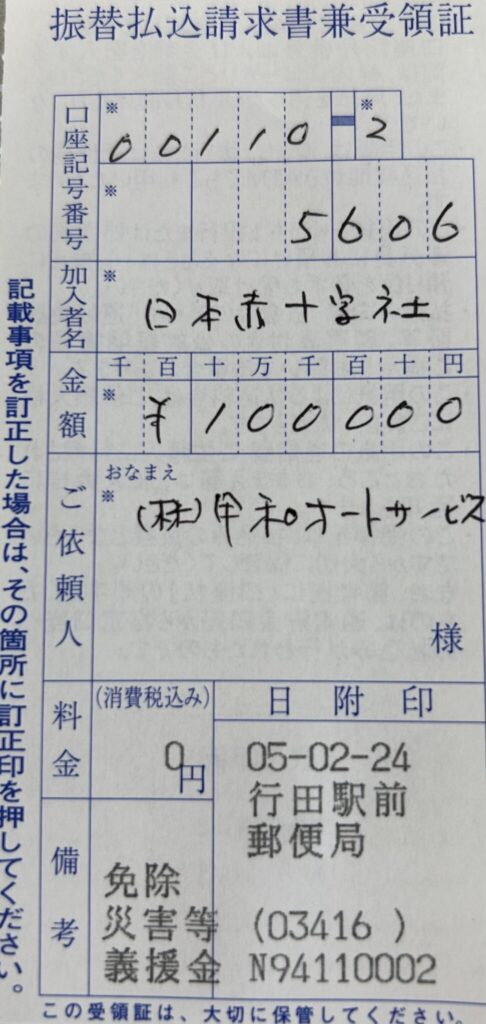 振替払込請求書兼受領証
口座記号番号
※ 00110 - ※ 2
※ 5606
加入者名
※ 日本赤十字社
金額
千 百 十 万 千 百 十 円
※ ¥100000
ご依頼人
おなまえ
※ (株)甲和オートサービス
様
料金
(消費税込み)
0円
日附印
05-02-24
行田駅前
郵便局
(03416 )
N94110002
備考
免除
災害等
義援金
記載事項を訂正した場合は、その箇所に訂正印を押してください。
この受領証は、大切に保管してください。